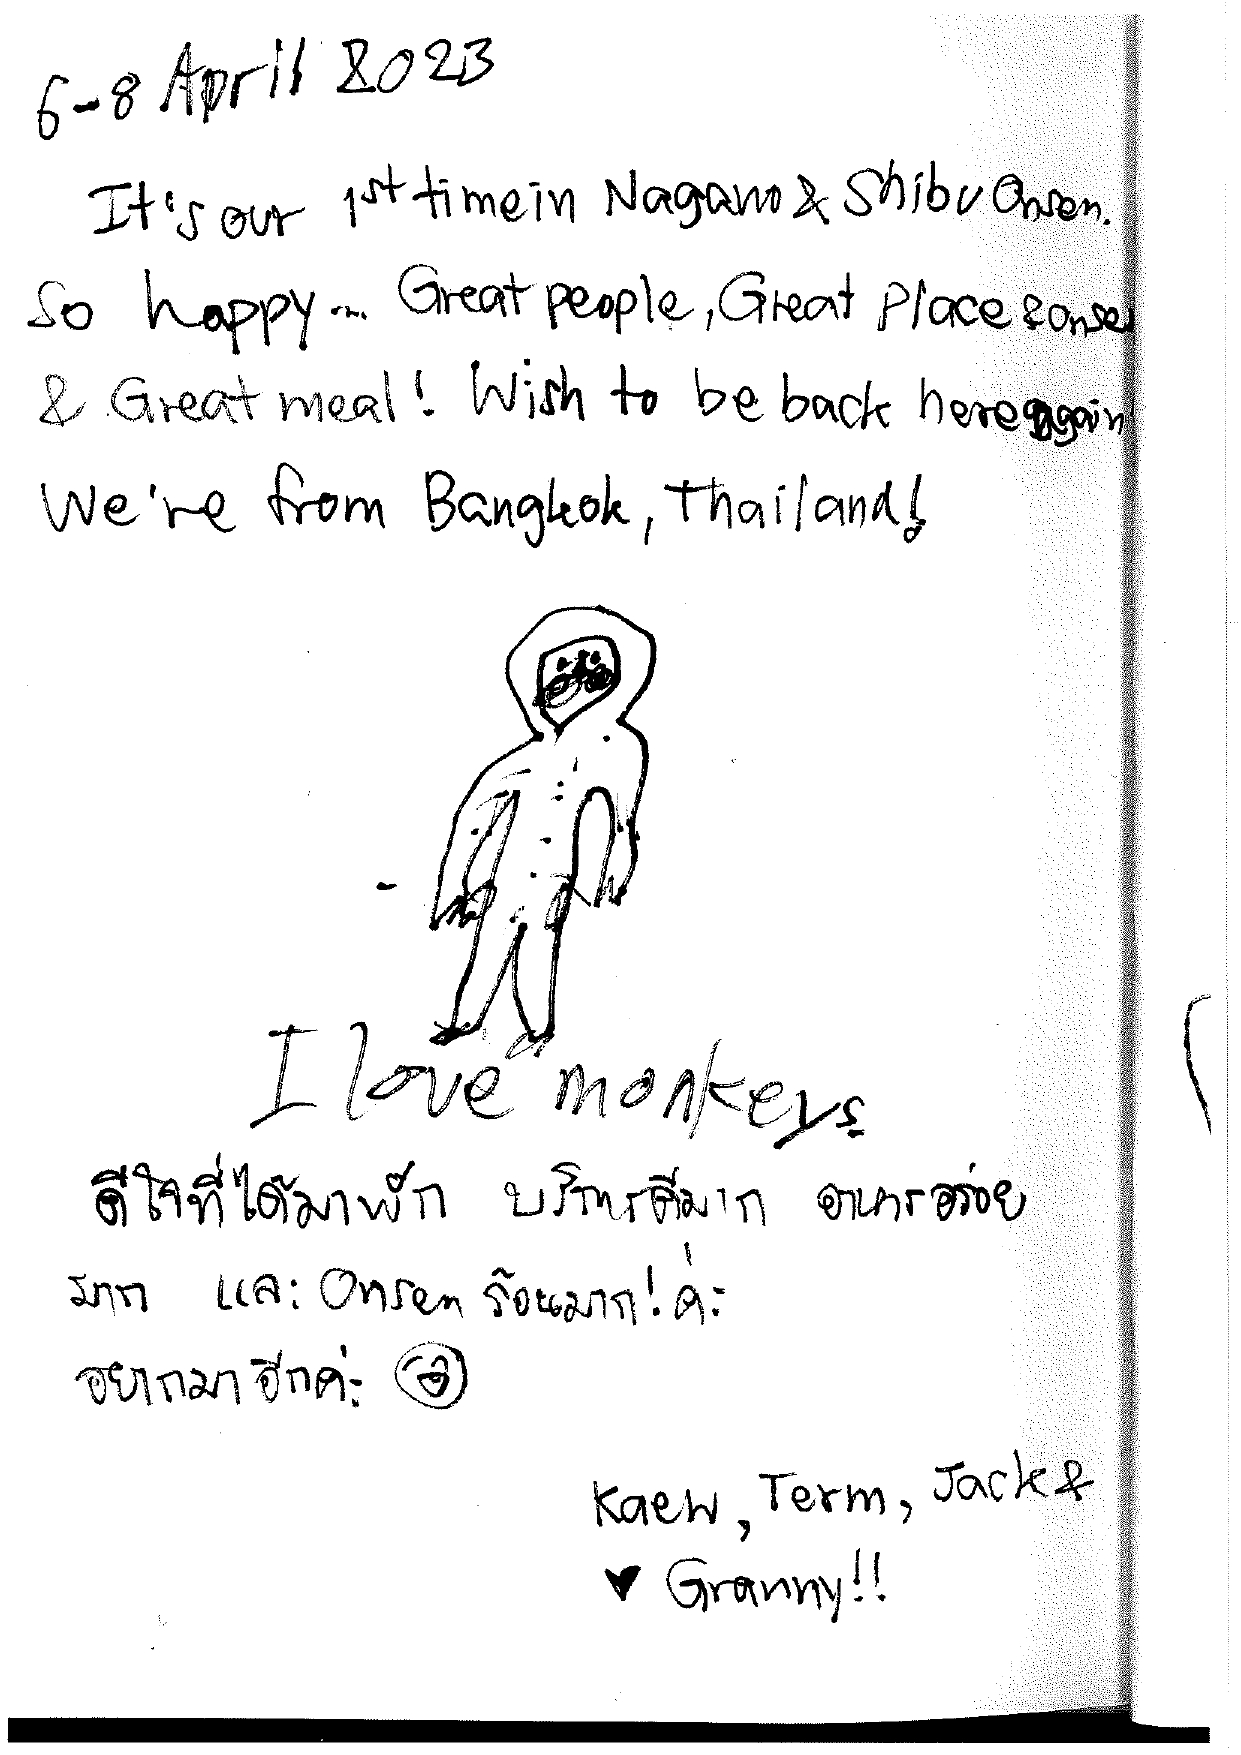 6-8 April 2023
It's our 1st time in Nagano & Shibu Onsen.
So happy.... Great people, Great Place & Onsen
& Great meal! Wish to be back here again
We're from Bangkok, Thailand!
I love monkeys
ดีใจที่ได้มาพัก บริการดีมาก อาหารอร่อย
มาก และ Onsen ร้อนมาก! ค่ะ
อยากมาอีกค่ะ
Kaew, Term, Jack &
♥ Granny!!